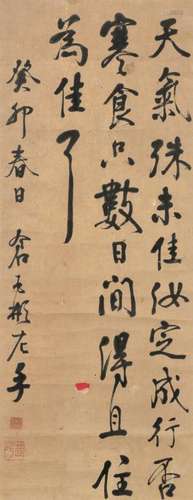 天氣殊未佳汝定成行否
寒食只數日間得且住
為佳了
癸卯春日
左手